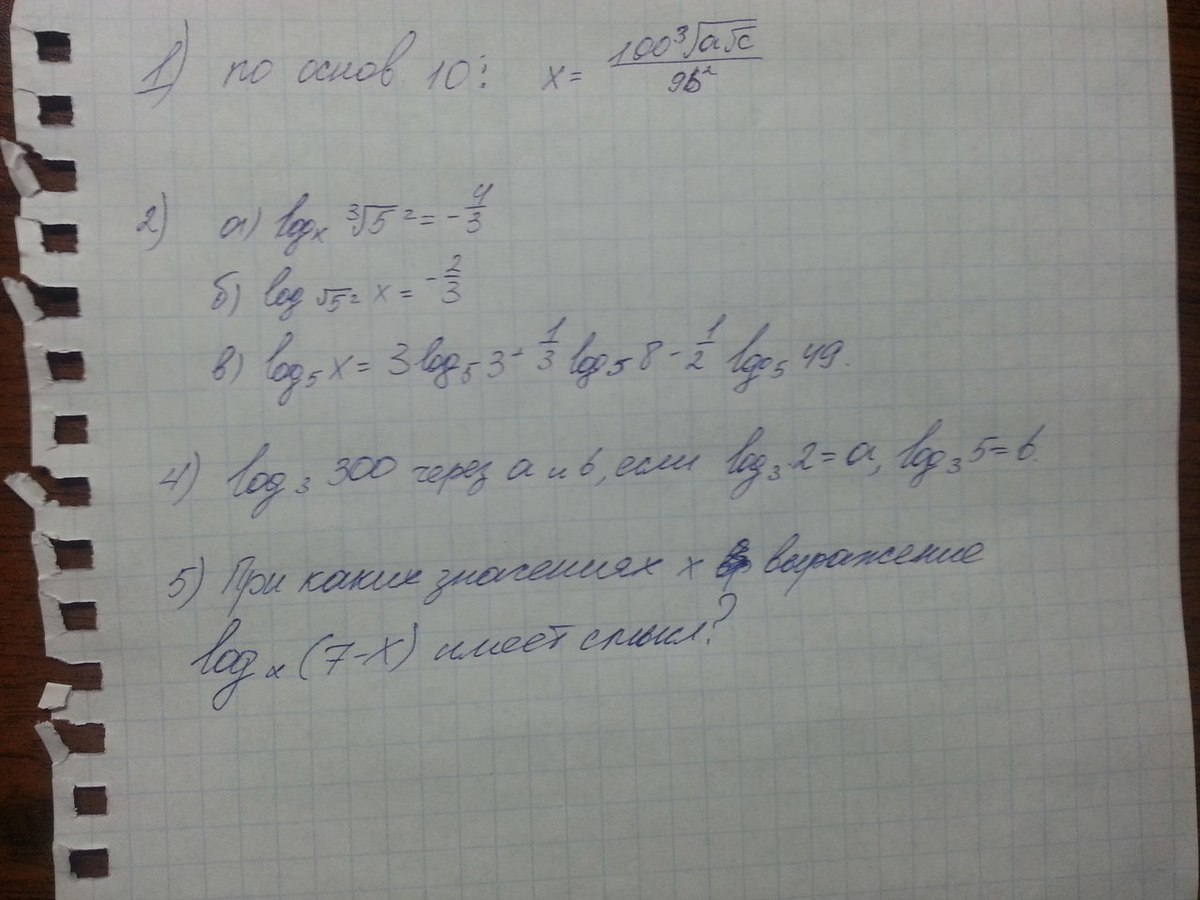 1) по основ 10: x = \frac{100 \sqrt[3]{a\sqrt{c}}}{9b^2}
2) а) log_x \sqrt[3]{5^2} = -\frac{4}{3}
б) log_{\sqrt{5^2}} x = -\frac{2}{3}
в) log_5 x = 3 log_5 3 + \frac{1}{3} log_5 8 - \frac{1}{2} log_5 49.
4) log_3 300 через a и b, если log_3 2 = a, log_3 5 = b.
5) При каких значениях x выражение
log_x (7-x) имеет смысл?